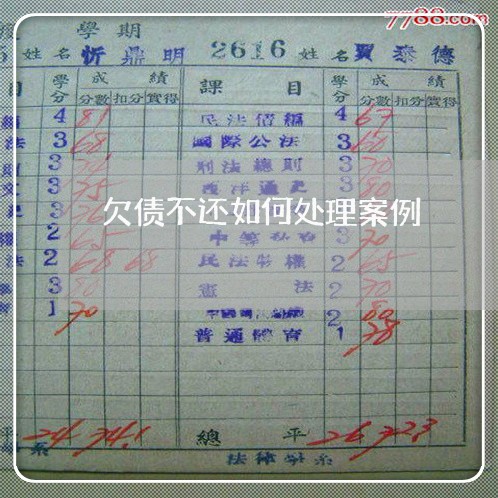 7788.com
學期
姓名 忻鼎明 2616 姓名 賈泰德
目 學分 成績 課目 學分 成績
分數 扣分 實得 分數 扣分 實得
4 81 民法債編 4 67
法 3 68 國際公法 3 60
3 刑法總則 3 70
3 75 西洋通史 3 80
欠债不还如何处理案例
2 65 3 70
法 2 68 68 民法物權 2 65
3 80 憲法 2 70
1 70 2 80
普通體育 1 78
平 24 74.1 總平 26 72.3
系 法律學系